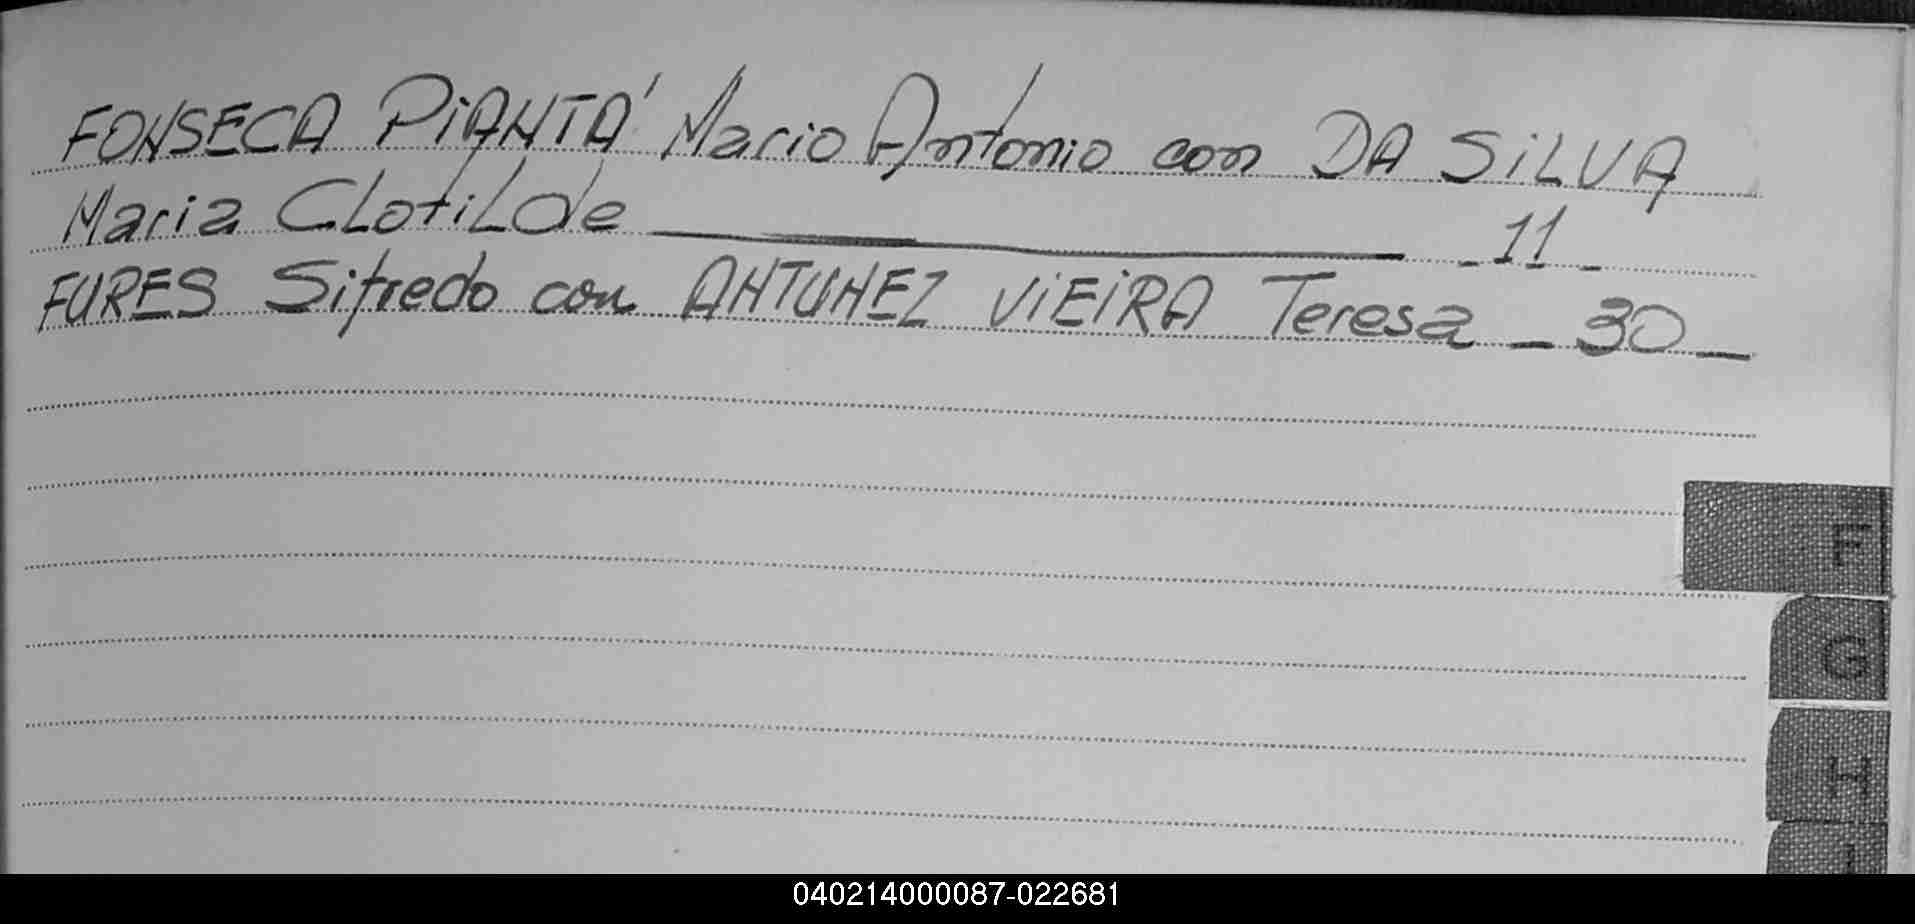 FONSECA PiANTA' Mario Antonio con DA SiLVA
Maria CLotiLde _ 11 _
FURES Sifredo con ANTUNEZ ViEiRA Teresa _ 30 _
F
G
H
I
040214000087-022681